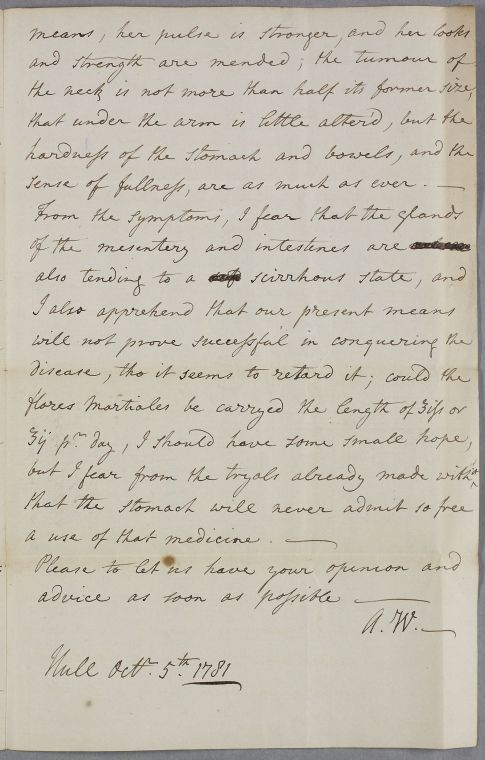 means, her pulse is stronger, and her looks
and strength are mended; the tumour of
the neck is not more than half its former size,
that under the arm is little alter'd, but the
hardness of the stomach and bowels, and the
sense of fullness, are as much as ever. —
From the symptoms, I fear that the glands
of the mesentery and intestines are
also tending to a scirrhous state, and
I also apprehend that our present means
will not prove successful in conquering the
disease, tho it seems to retard it; could the
flores martiales be carryed the length of ʒiſs or
ʒij pr. day, I should have some small hope,
but I fear from the tryals already made with it
that the stomach will never admit so free
a use of that medicine. —
Please to let us have your openion and
advice as soon as possible —
A. W. —
Hull Octr. 5th. 1781